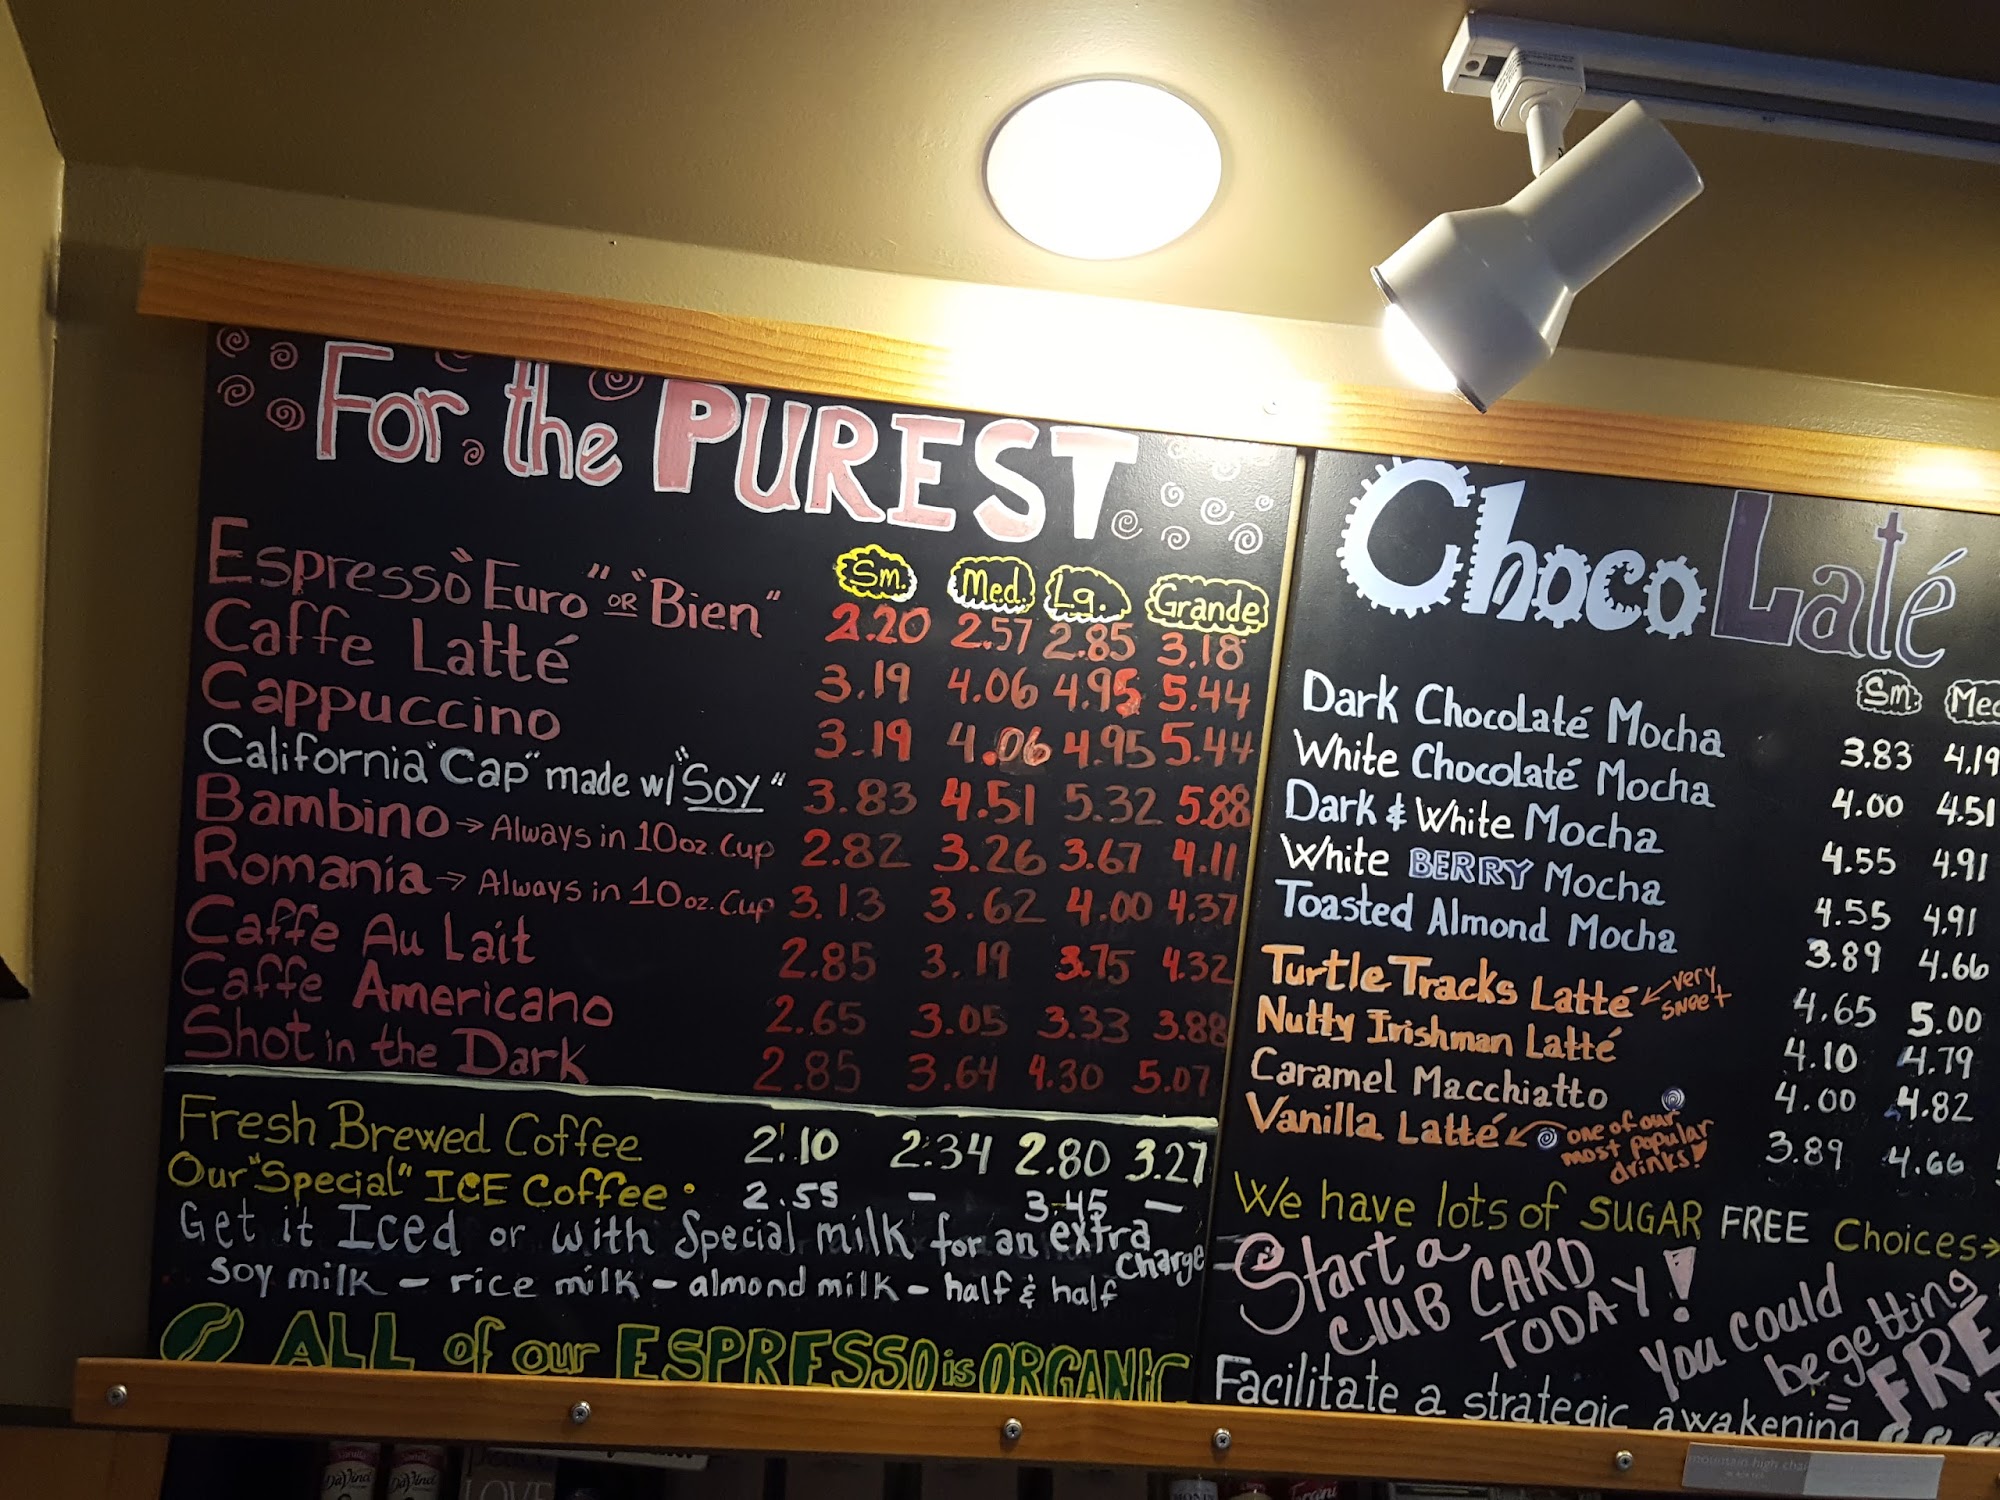 For the PUREST
Sm. Med. Lg. Grande
Espresso "Euro" OR "Bien" 2.20 2.57 2.85 3.18
Caffe Latté 3.19 4.06 4.95 5.44
Cappuccino 3.19 4.06 4.95 5.44
California "Cap" made w/ "Soy" 3.83 4.51 5.32 5.88
Bambino → Always in 10oz. Cup 2.82 3.26 3.67 4.11
Romania → Always in 10oz. Cup 3.13 3.62 4.00 4.37
Caffe Au Lait 2.85 3.19 3.75 4.32
Caffe Americano 2.65 3.05 3.33 3.88
Shot in the Dark 2.85 3.64 4.30 5.07
Fresh Brewed Coffee 2.10 2.34 2.80 3.27
Our "Special" ICE Coffee • 2.55 – 3.45 –
Get it Iced or with Special milk for an extra charge
soy milk – rice milk – almond milk – half & half
ALL of our ESPRESSO is ORGANIC
ChocoLaté
Sm. Med
Dark Chocolaté Mocha 3.83 4.19
White Chocolaté Mocha 4.00 4.51
Dark & White Mocha 4.55 4.91
White BERRY Mocha 4.55 4.91
Toasted Almond Mocha 3.89 4.66
Turtle Tracks Latté ← very sweet 4.65 5.00
Nutty Irishman Latté 4.10 4.79
Caramel Macchiatto 4.00 4.82
Vanilla Latté ← one of our most popular drinks! 3.89 4.66
We have lots of SUGAR FREE Choices →
Start a
CLUB CARD
TODAY!
You could
be getting
FRE
Facilitate a strategic awakening
DaVinci DaVinci
LOVE
mountain high chai